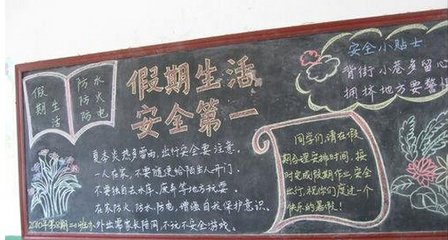 假期生活
防水
防火
防电
假期生活
安全第一
夏季炎热多雷雨，出行安全要注意。
一人在家，不要随意给陌生人开门。
不要独自去水库、废弃等地方玩耍。
在家防火、防水、防电，增强自我保护意识。
外出需家长陪同，不玩不安全游戏。
同学们，请在假
期合理安排时间，按
时完成假期作业，安全
出行，祝你们度过一个
快乐的暑假！
安全小贴士
背街小巷多留心
拥挤地方要警